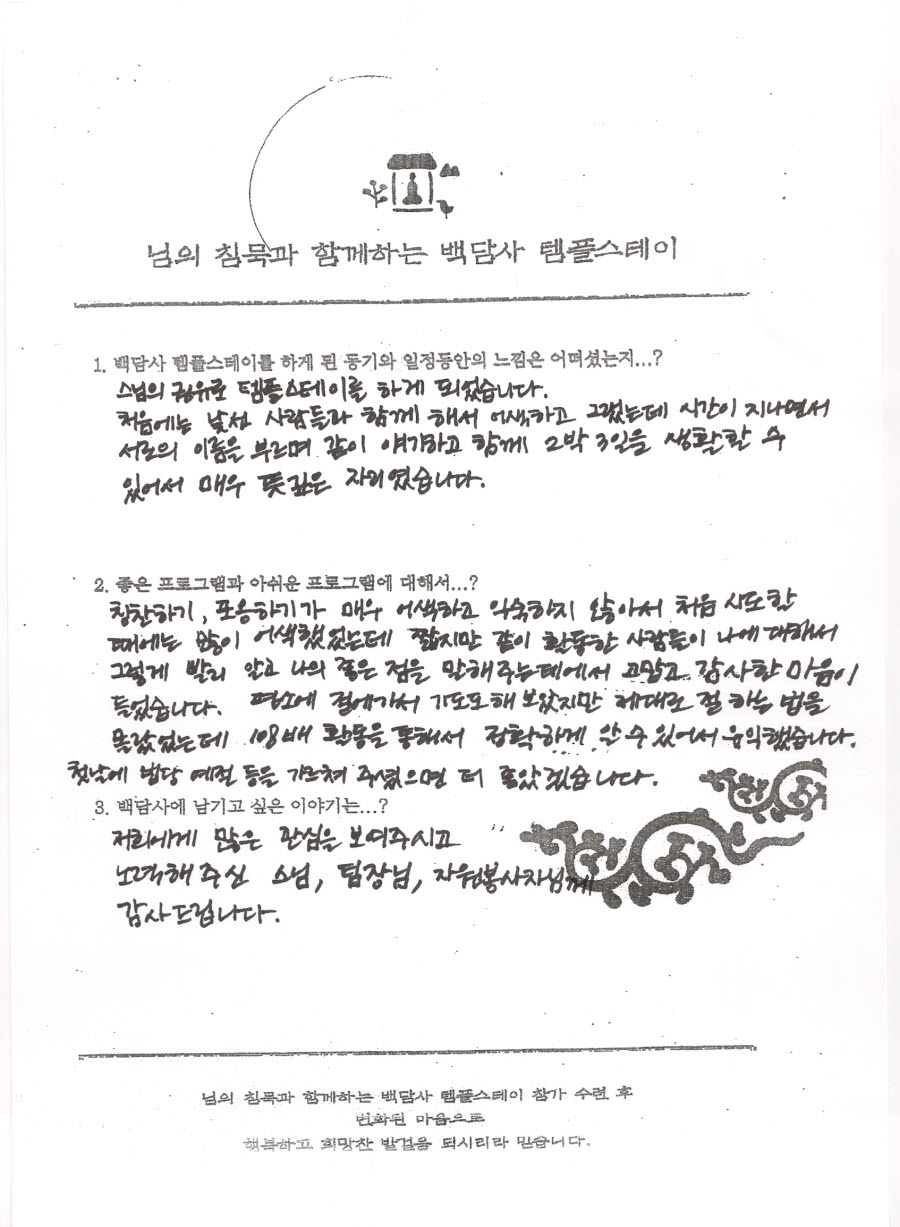 님의 침묵과 함께하는 백담사 템플스테이
1. 백담사 템플스테이를 하게 된 동기와 일정동안의 느낌은 어떠셨는지...?
스님의 권유로 템플스테이를 하게 되었습니다.
처음에는 낯선 사람들과 함께 해서 어색하고 그랬는데 시간이 지나면서
서로의 이름을 부르며 같이 얘기하고 함께 2박 3일을 생활할 수
있어서 매우 뜻깊은 자리였습니다.
2. 좋은 프로그램과 아쉬운 프로그램에 대해서...?
칭찬하기, 포옹하기가 매우 어색하고 익숙하지 않아서 처음 시도한
때에는 많이 어색했었는데 짧지만 같이 활동한 사람들이 나에 대해서
그렇게 빨리 알고 나의 좋은 점을 말해주는데에서 고맙고 감사한 마음이
들었습니다. 평소에 절에가서 기도도 해 보았지만 제대로 절 하는 법을
몰랐었는데 108배 활동을 통해서 정확하게 알 수 있어서 유익했습니다.
첫날에 법당 예절 등을 가르쳐 주셨으면 더 좋았겠습니다.
3. 백담사에 남기고 싶은 이야기는...?
저희에게 많은 관심을 보여주시고
노력해주신 스님, 팀장님, 자원봉사자님께
감사드립니다.
님의 침묵과 함께하는 백담사 템플스테이 참가 수련 후
변화된 마음으로
행복하고 희망찬 발걸음 되시리라 믿습니다.